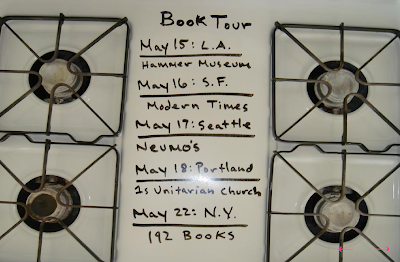 Book Tour
May 15: L.A.
Hammer Museum
May 16: S.F.
Modern Times
May 17: Seattle
Neumo's
May 18: Portland
1s Unitarian Church
May 22: N.Y.
192 Books